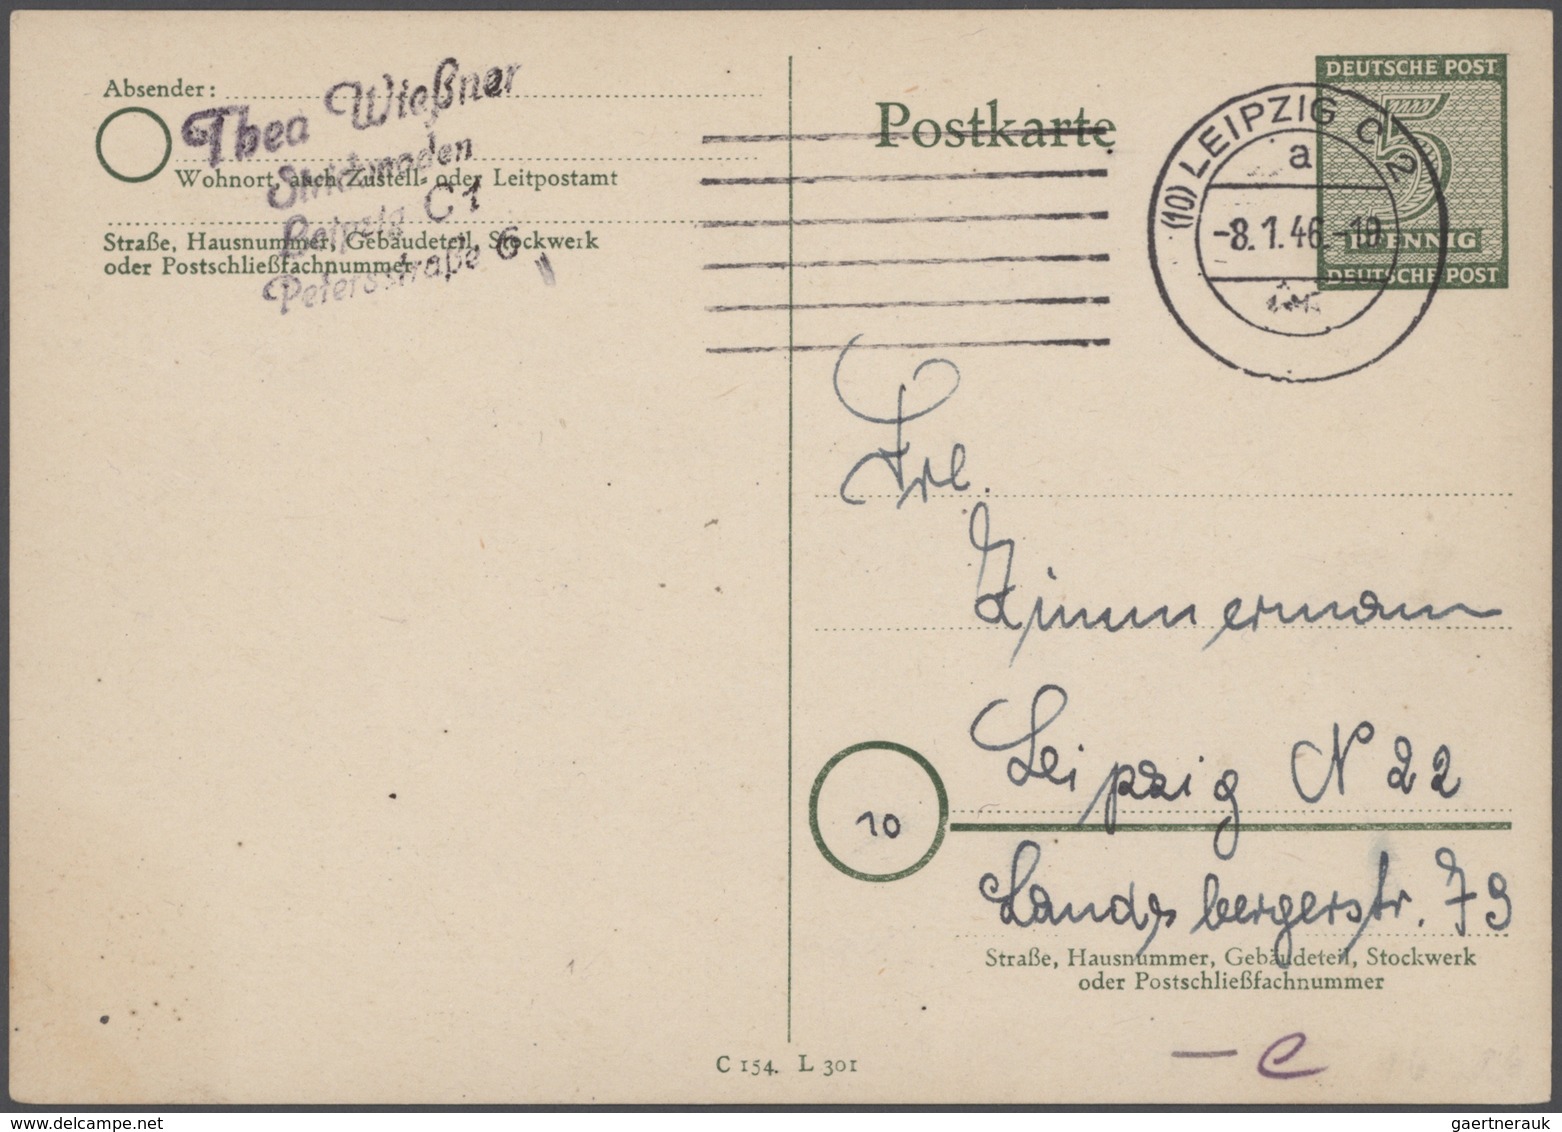 Absender:
Thea Wießner
Strickmoden
Leipzig C 1
Petersstraße 6
Wohnort, auch Zustell- oder Leitpostamt
Straße, Hausnummer, Gebäudeteil, Stockwerk
oder Postschließfachnummer
Postkarte
(10) LEIPZIG C 2
a
-8.1.46.-19
DEUTSCHE POST
5
PFENNIG
DEUTSCHE POST
Frl.
Zimmermann
Leipzig N 22
10
Landsbergerstr. 79
Straße, Hausnummer, Gebäudeteil, Stockwerk
oder Postschließfachnummer
C 154. L 301
– e
gaertnerauk @ delcampe.net